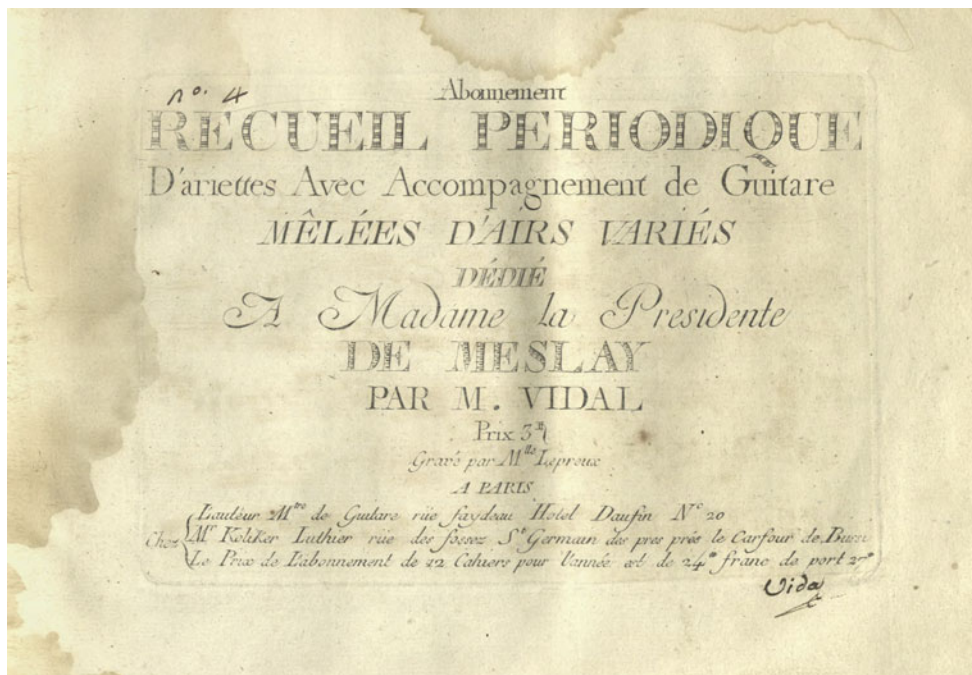 n.º 4
Abonnement
RECUEIL PERIODIQUE
D'ariettes Avec Accompagnement de Guitare
MÊLÉES D'AIRS VARIÉS
DÉDIÉ
A Madame la Presidente
DE MESLAY
PAR M. VIDAL
Prix 3
Gravé par Mlle Lepreux
A PARIS
Chez
L'auteur Mtre de Guitare rüe faydeau Hotel Daufin No 20
Mr Koliker Luthier rüe des fossez St Germain des pres près le Carfour de Bussi
Le Prix de L'abonnement de 12 Cahiers pour l'année est de 24 franc de port 27
Vidal